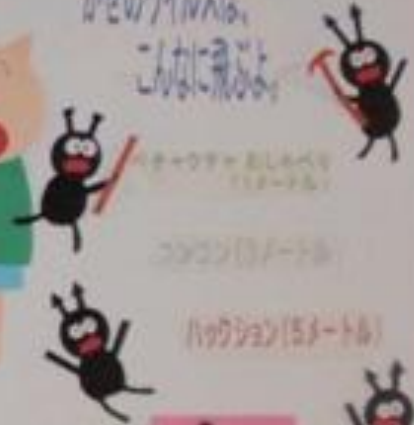 かぜのウイルスは、
こんなに飛ぶよ。
ペチャクチャ おしゃべり
(1メートル)
コンコン(3メートル)
ハックション(5メートル)